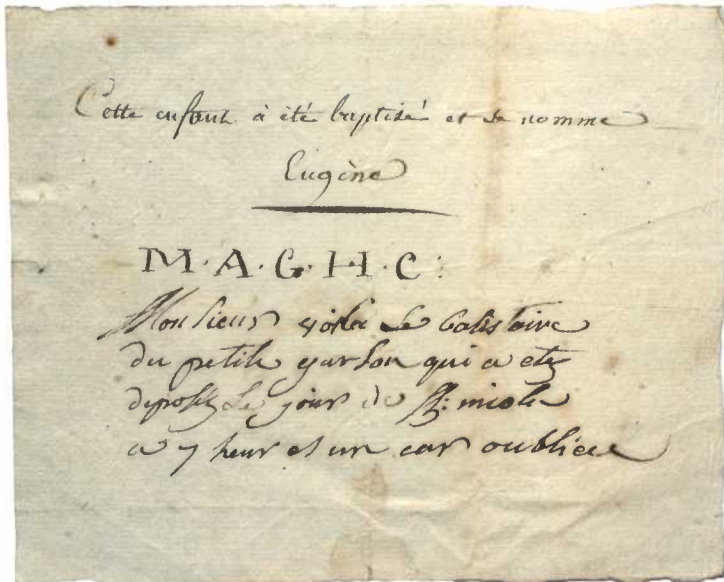 Cette enfant à été baptisé et se nomme
Eugène
M·A·G·H·C:
Monsieur voila Le batistaire
du petite garson qui a etez
deposez Le jour de St: nicola
a 7 heur et un car oubliee